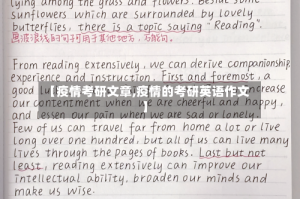 lying among the grass and flowers. Beside some
sunflowers which are surrounded by lovely
butterflies, there is a topic saying "Reading".
From reading extensively, we can derive companionship
experience and instruction. First and foremost, a
good
【疫情考研文章,疫情的考研英语作文
】
when we are cheerful and happy,
and essen our pain when we are sad or lonely.
Few of us can travel far from home a lot or live
long over one hundred, but all of us can live many
lives through the pages of books. Last but not
least, reading extensively can improve our
intellectual ability, broaden our minds and
make us wise.